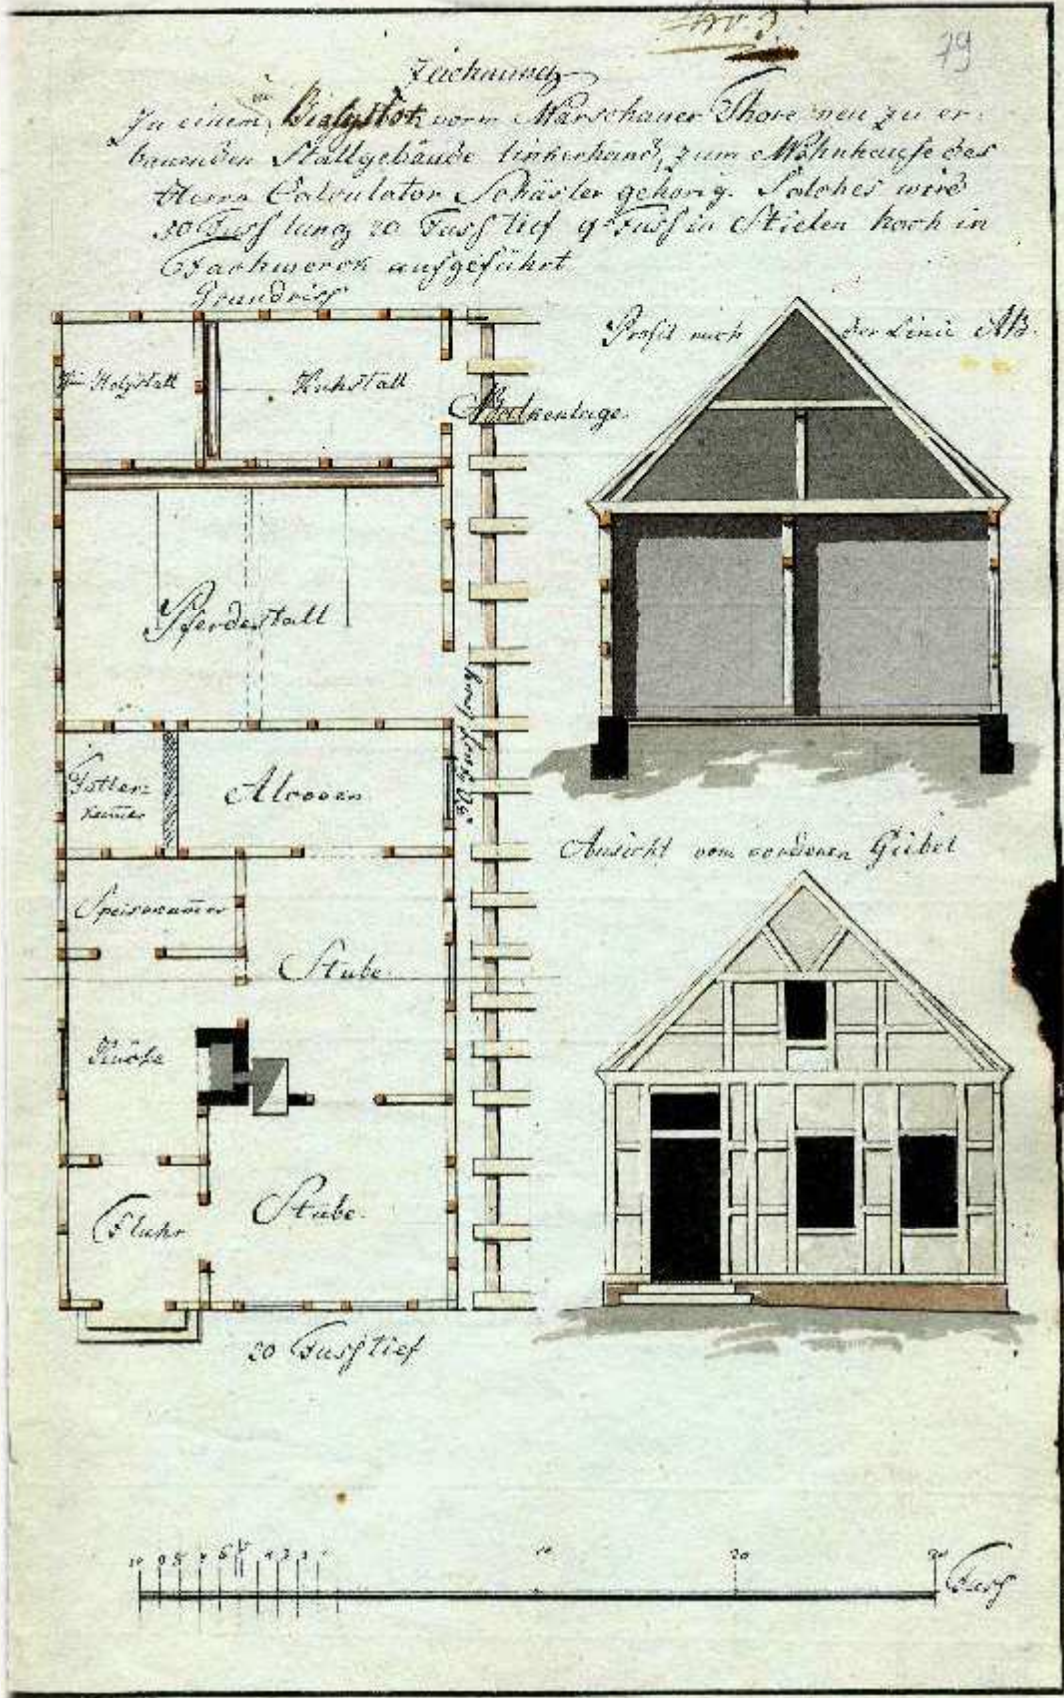 No. 3.
79
Zeichnung
Zu einem in Bialystok vorm Warschauer Thore neu zu er-
bauenden Stallgebäude linkerhand, zum Wohnhause des
Herrn Calculator Schäsler gehörig. Solches wird
50 Fuss lang 20 Fuss tief 9 Fuss in Stielen hoch in
Fachwerck aufgeführt
Grundriss
Profil nach der Linie AB.
Holzstall
Kuhstall
Balkenlage.
Pferdestall
50 Fuss lang
Futter-
kam̄er
Alcoven
Ansicht vom vorderen Giebel
Speisekam̄er
Stube
Küche
Stube.
Fluhr
20 Fuss tief
10 9 8 7 6 5 4 3 2 1 10 20 30 Fuss